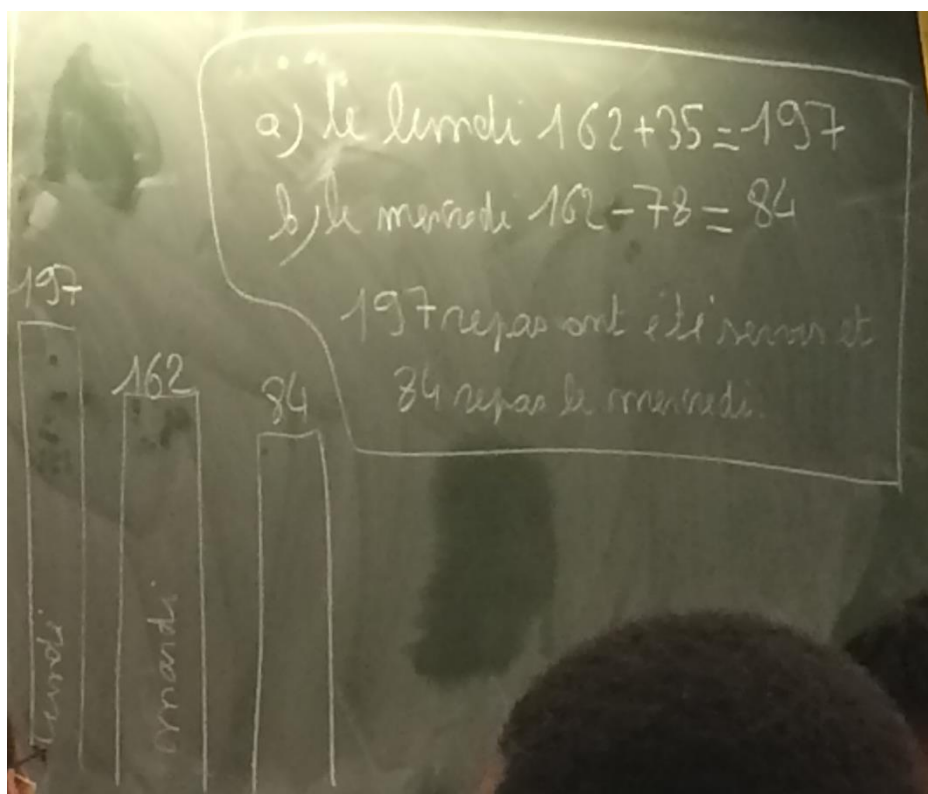 a) le lundi 162+35=197
b) le mercredi 162-78=84
197 repas ont été servis et
84 repas le mercredi.
197
162
84
lundi
mardi